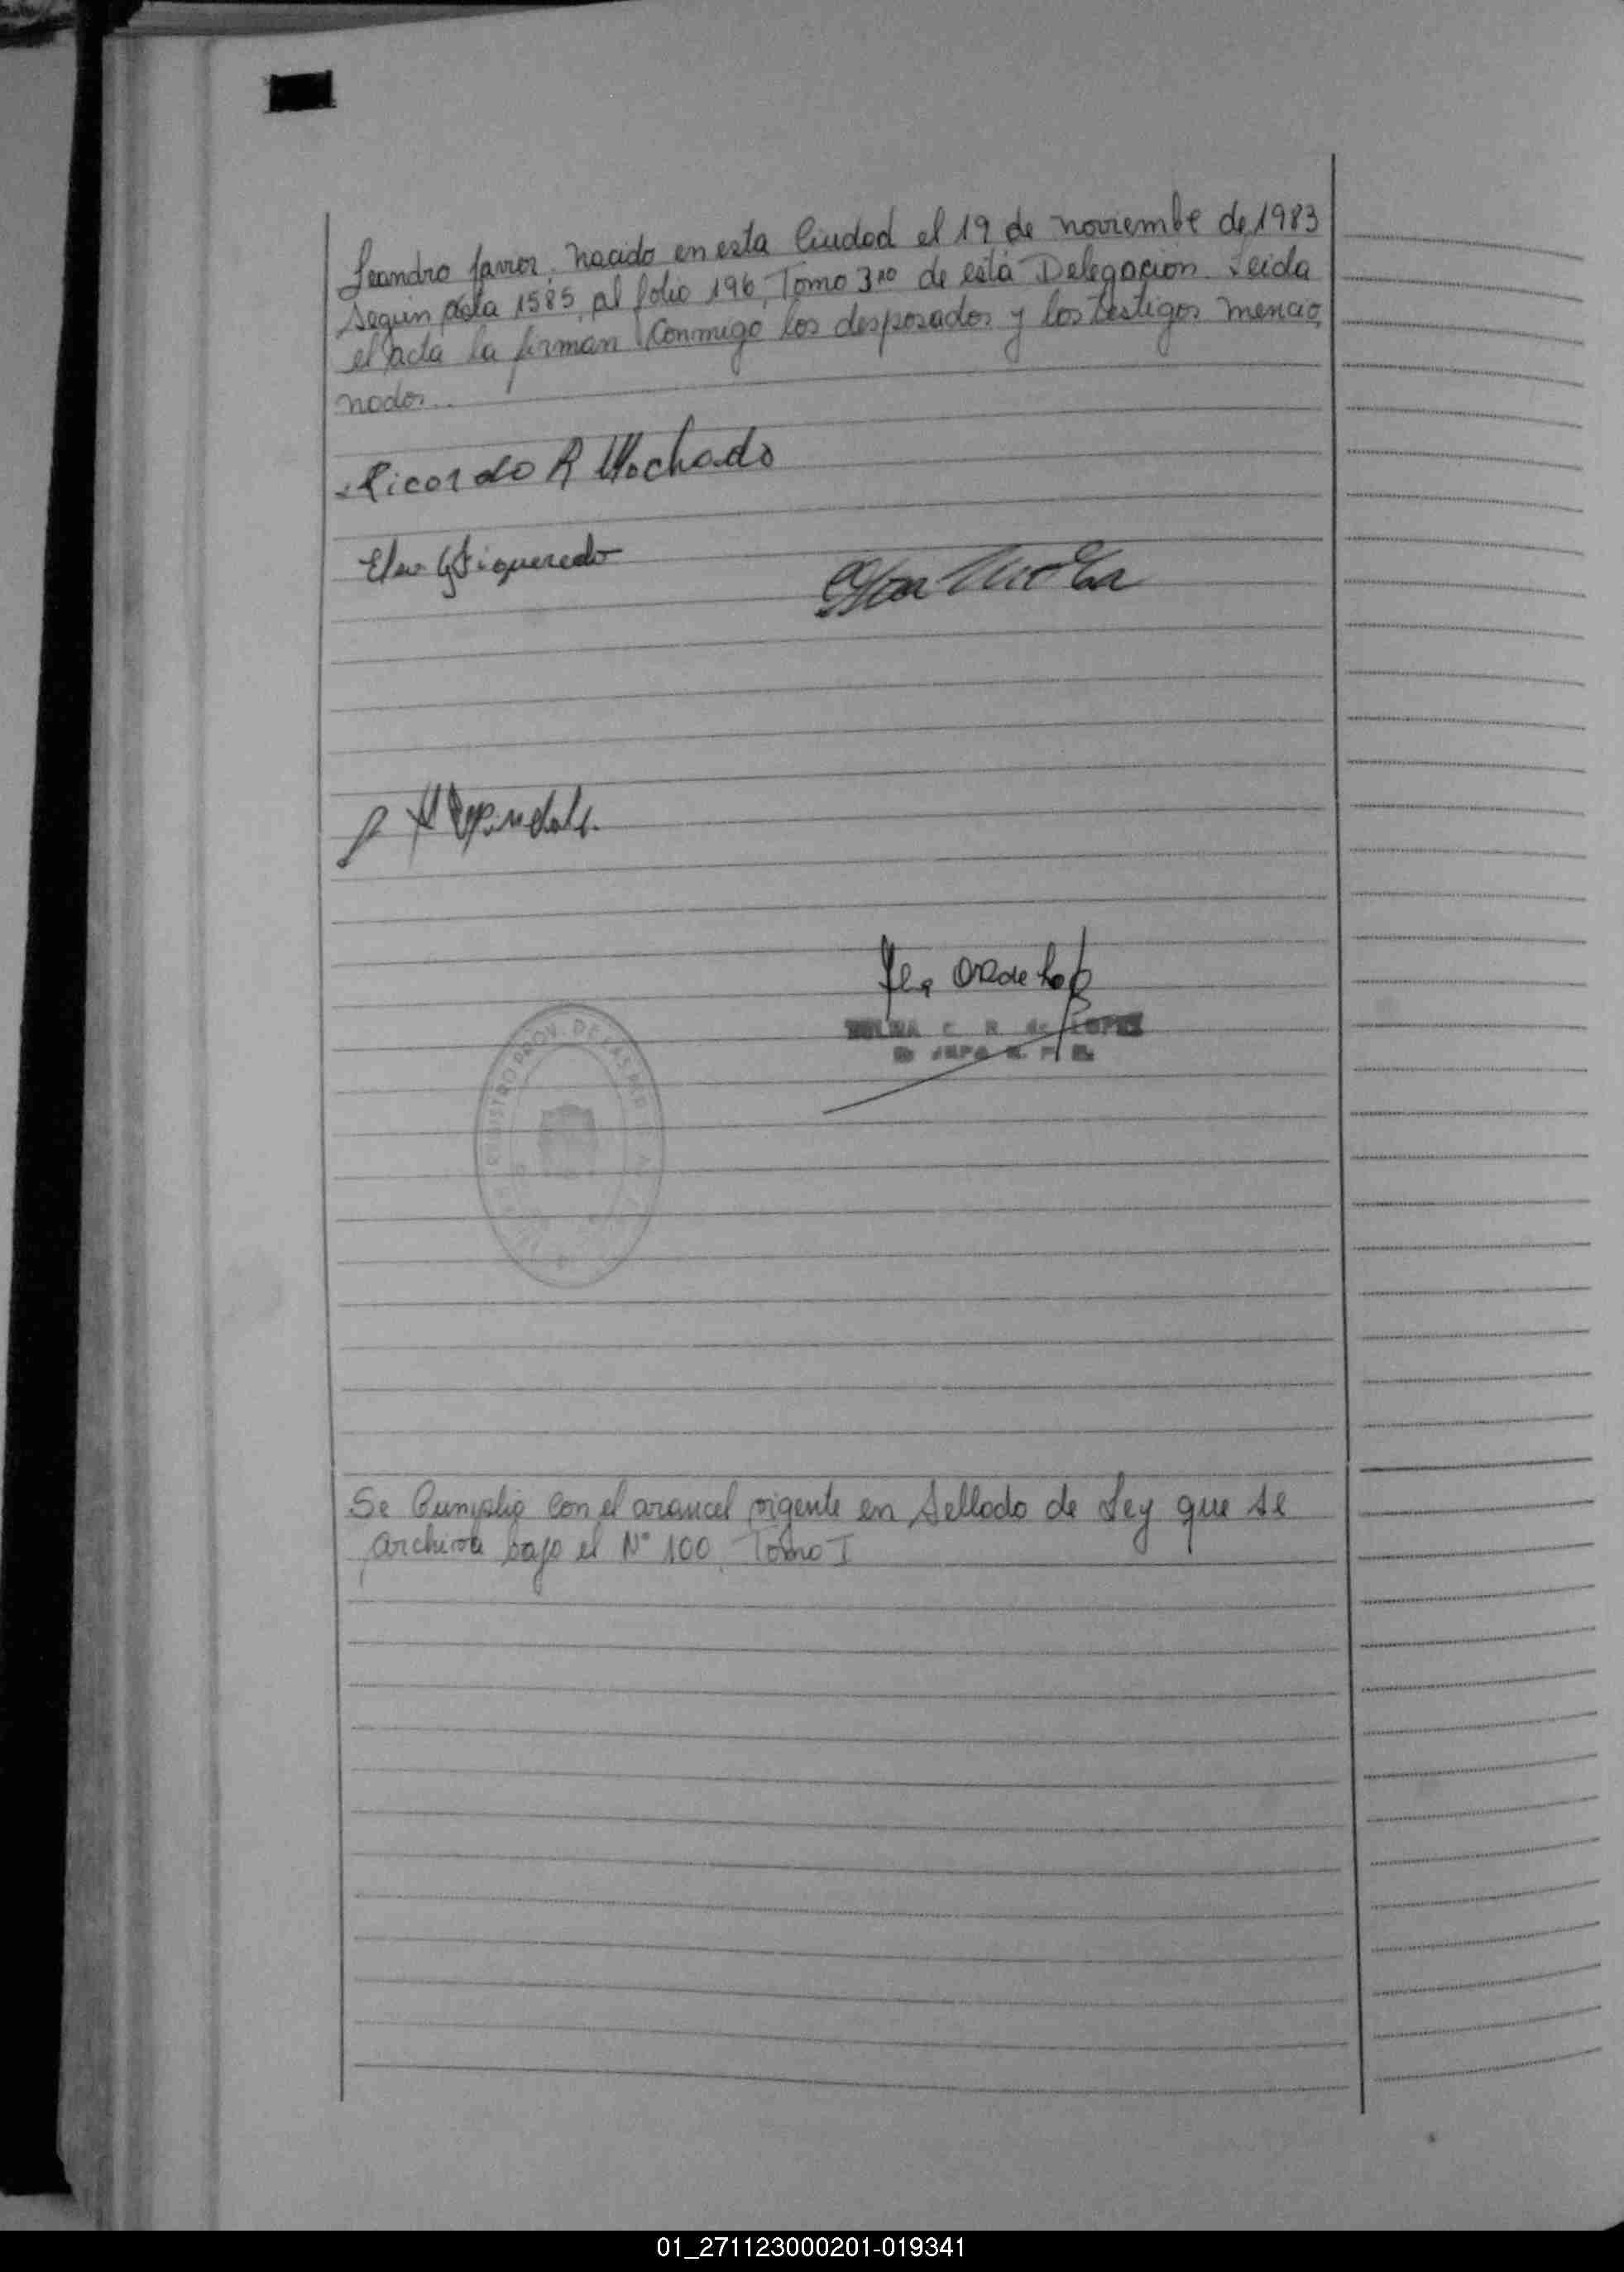 Leandro Javier, nacido en esta Ciudad el 19 de noviembre de 1983
según acta 1585, al folio 196, Tomo 3ro de esta Delegación. Leida
el acta la firman conmigo los desposados y los testigos mencio
nados.
Ricardo R Machado
Elsa G Figueredo
C. R. de LOPEZ
REGISTRO PROV. DE LAS PERS
Se Cumplio con el arancel vigente en Sellado de Ley que se
archiva bajo el Nº 100, Tomo I
01_271123000201-019341